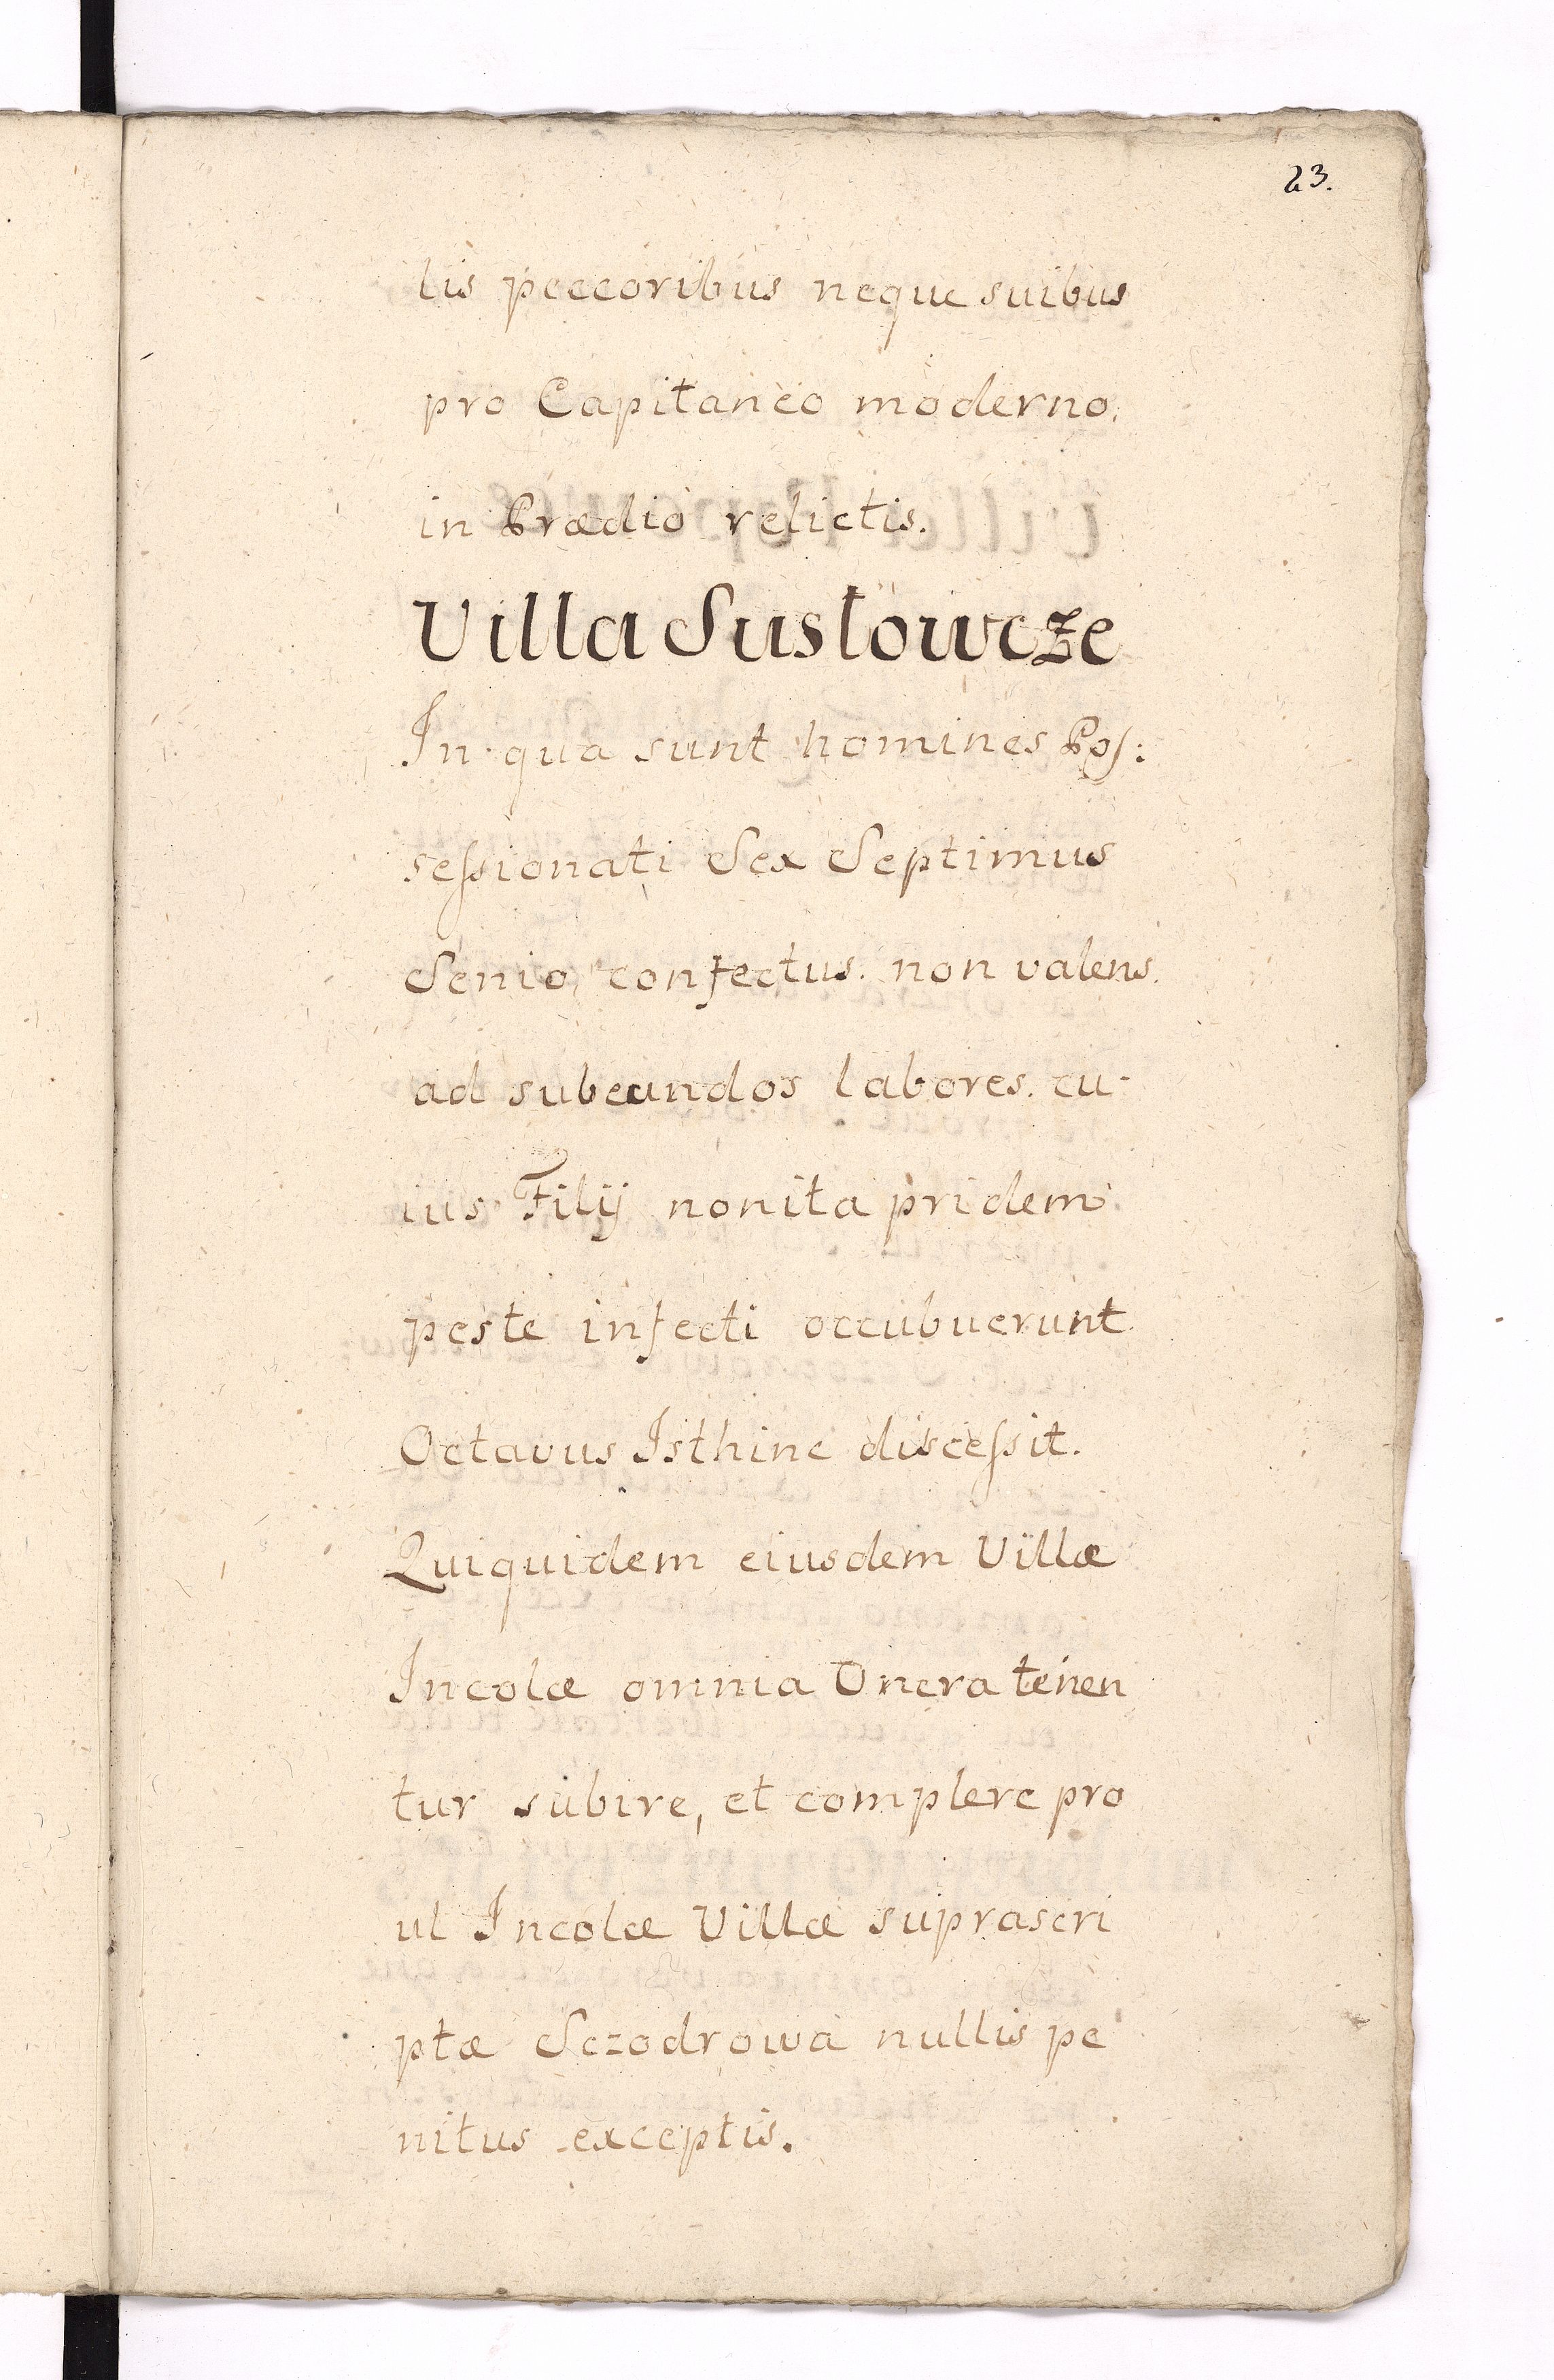 23.
lis peccoribus neque suibus
pro Capitaneo moderno.
in Prædio relictis.
Villa Suslowcze
In qua sunt homines Pos:
sessionati Sex Septimus
Senio confectus. non valens.
ad subeundos labores. cu-
ius Filij nonita pridem
peste infecti occubuerunt.
Octavus Isthinc discessit.
Quiquidem eiusdem Villæ
Incolæ omnia Onera tenen
tur subire, et complere pro
ul Incolæ Villæ suprascri
ptæ Sczodrowa nullis pe
nitus exceptis.